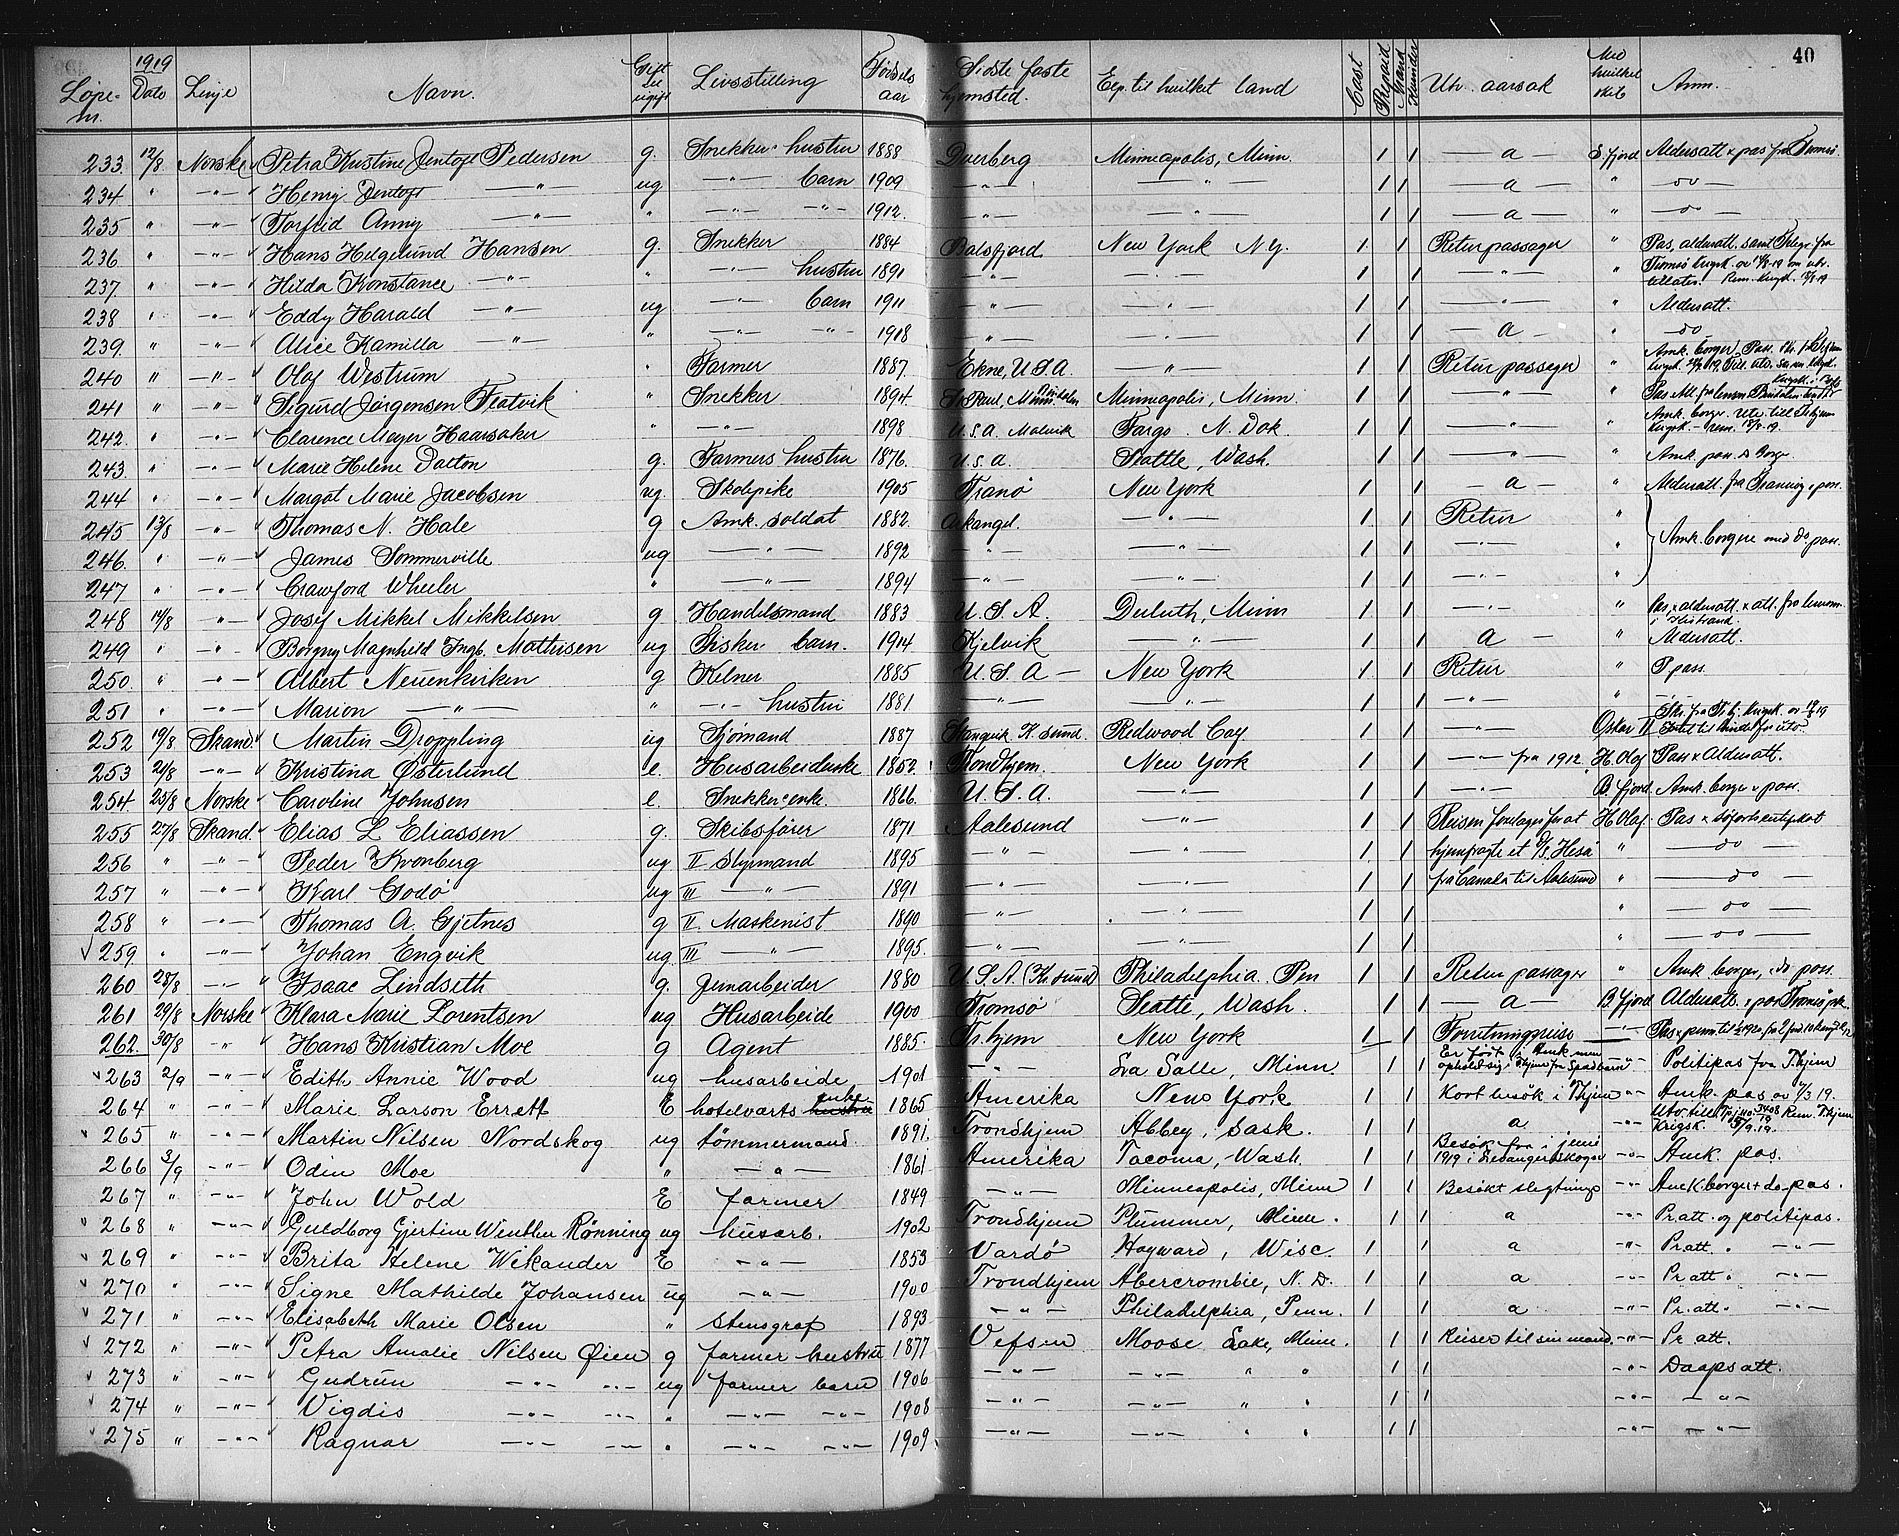 40
Løpe-nr. 1919 Dato Linje Navn. Gift el. ugift Livsstilling Fødsels aar Sidste faste hjemsted. Exp. til hvilket land Cast Prepaid Mand Kvinder Utv. aarsak Med hvilket skib Anm.
233. 12/8 Norske Petra Kristine Jentoft Pedersen g. Snekker hustru 1888 Dverberg Minneapolis, Minn. 1 1 — a — S.fjord Aldersatt. x pas fra Tromsø.
234 " —"— Henry Jentoft —"— ug —"— barn 1909 —"— —"— 1 1 — a — " — do —
235 " —"— Torfrid Anny —"— " —"— —"— 1912. —"— —"— 1 1 — a — " — do —
236 " —"— Hans Helgelund Hansen g. Snekker 1884 Balsfjord New York N.y. 1 1 Returpassager " Pas, aldersatt. samt Telegr. fra
237. " —"— Hilda Konstance —"— " —"— hustru 1891 —"— —"— 1 1 —"— " Tromsø krigsk. av 11/8-19 om utv. tillatev. Rem. krigsk. 12/8 19
238 " —"— Eddy Harald —"— ug —"— barn 1911 —"— —"— 1 1 —"— " Aldersatt.
239. " —"— Alice Kamilla —"— " —"— —"— 1918 —"— —"— 1 1 — a — " — do
240 " —"— Olaf Westrum " Farmer 1887. Ekne, U.S.A. —"— 1 1 Retur passager " Amk. borger, Pass.
241 " —"— " Sigurd Jørgensen " Snekker 1894 St Paul, Minn. Minneapolis, Minn 1 1 —"— " Pas
242. " —"— Clarence Meyer Haarsaker " —"— 1898 U.S.A. Malvik Fargo. N. Dak. 1 1 —"— " Amk. borger.
243 " —"— Marie Helene Dalton g. Farmers hustru 1876. U.S.a. Seattle, Wash. 1 1 —"— " Amk. pas. & Borge.
244 " —"— Margot Marie Jacobsen ug. Skolepike 1905 Tranø New York 1 1 — a — " Aldersatt. fra Tranøy x pass.
245 13/8 —"— Thomas N. Hale g Amk. soldat 1882. Arkangel. —"— 1 1 Retur " Amk. borgere med do. pass.
246. " —"— James Sommerville ug —"— 1892 —"— —"— 1 1 —"— "
247 " —"— Crawford Wheeler " —"— 1894 —"— —"— 1 1 —"— "
248 14/8 —"— Josef Mikkel Mikkelsen g Handelsmand 1883 U.S.A. Duluth, Minn 1 1 —"— " Pas, x aldersatt. x att. fra lensm.
249 " —"— Borgny Magnhild Ingb. Mathisen ug Fisker barn. 1914 Kjelvik —"— 1 1 a — " Aldersatt.
250. " —"— Albert Neuenkirken g Kelner 1885 U.S.A — New York 1 1 Retur " P.pass.
251 " —"— Marion —"— " —"— hustru 1881 —"— —"— 1 1 —"— " —"—
252 19/8 Skand. Martin Droppling ug Sjømand 1887 Stangvik K sund. Redwood Cay 1 1 —"— Oskar II
253 20/8 —"— Kristina Østerlund e. Husarbeiderske 1852. Trondhjem. New York 1 1 —"— fra 1912. H. Olaf Pass x Aldersatt.
254 25/8 Norske Caroline Johnsen e. Snekker enke. 1866. U.S.A. —"— 1 1 —"— B fjord. Amk. borger x pass.
255 27/8 Skand. Elias L Eliassen g. Skibsfører 1871 Aalesund —"— 1 1 Reisen foretages for at H. Olaf Pas x søfartscertifikat
256 " —"— Peder Kronberg ug II Styrmand 1895 —"— —"— 1 1 hjemfragte et D/S Hesø " — do —
257 " —"— Karl Godø ug III —"— 1891 —"— —"— 1 1 fra Canada til Aalesund " — do —
258 " —"— Thomas A. Gjetnes g II. Maskinist 1890 —"— —"— 1 1 " — do —
259 " —"— Johan Engvik ug. III —"— 1895. —"— —"— 1 1 " — do —
260 28/8 —"— " Isaac Lindseth g. Jernarbeider 1880 U.S.A (Kr.sund) Philadelphia. Pen 1 1 Retur passager " Amk borger, x do pass.
261 29/8 Norske Klara Marie Lorentsen ug Husarbeide 1900 Tromsø Seatle, Wash. 1 1 — a — B fjord Aldersatt. x pas Tromsø
262. 30/8 " Hans Kristian Moe g Agent 1885. Tr.hjem New York 1 1 Forretningsreise —"—
263 2/9 —"— Edith Annie Wood ug husarbeide 1901 —"— Lva Salle, Minn. 1 1 Er født i Amk. men opholdt sig i Thjem fra Spædbarn —"— Politipas fra T.hjem
264 " —"— Marie Larson Errett E hotelværts enke 1865 Amerika New York 1 1 Kort besøk i T.hjem —"— Amk. pas av 7/3 19.
265 " —"— Martin Nilsen Nordskog ug tømmermand. 1891. Trondhjem Abbey, Sask. 1 1 a —"— Utv. till. No jno. 3408 Rem. T.hjem Krigsk. 1/9.19.
266 3/9 —"— Odin Moe " —"— 1861 Amerika Tacoma, Wash. 1 1 Besøk fra i jeni 1919 i Levanger & Skogn —"— Amk. pas.
267 " —"— John Wold E farmer 1849 —"— Minneapolis, Minn 1 1 Besøkt slegtninge —"— Amk borger + do pas.
268 " —"— Guldborg Gjertine Winther Rønning ug husarb. 1902 Trondhjem Plummer, Minn. 1 1 a —"— Pr.att. og politipas.
269 " —"— Brita Helene Wikander E —"— 1853 Vardø Hayward, Wisc. 1 1 a —"— Pr.att. " —"—
270 " —"— Signe Mathilde Johansen ug —"— 1900 Trondhjem Abercrombie, N.D. 1 1 a —"— Pr att. " —"—
271 " —"— Elisabeth Marie Olsen " stenograf 1893 —"— Philadelphia, Penn. 1 1 a —"— Pr. att. " —"—
272 " —"— Petra Amalie Nilsen Øien g farmer hustru 1877 Vefsen Moose Lake, Minn. 1 1 Reiser til sin mand. —"— Pr att.
273 " —"— Gudrun —"— —"— ug farmer barn 1906 —"— —"— " " 1 1 —"— Daapsatt.
274 " —"— Vigdis —"— —"— " —"— —"— 1908 —"— —"— " " 1 1 —"— —"—
275 " —"— Ragnar —"— —"— " —"— —"— 1909 —"— —"— " " 1 1 —"— —"—